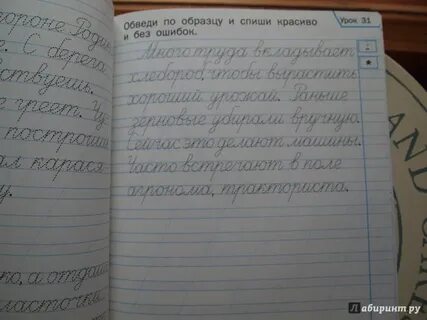 ороне Родин
е. С берега
вствуешь.
греет. Чу
построили
ал карася
у.
о, а отдаш
ласточки
Обведи по образцу и спиши красиво
и без ошибок.
Урок 31
Много труда вкладывает
хлебороб, чтобы вырастить
хороший урожай. Раньше
зерновые убирали вручную.
Сейчас это делают машины.
Часто встречают в поле
агронома, тракториста.
AND
Лабиринт.ру